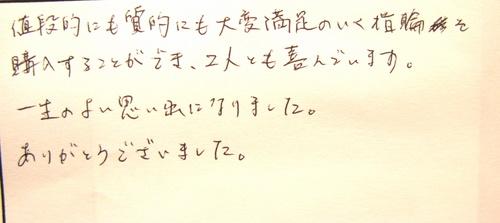 値段的にも質的にも大変満足のいく指輪を
購入することができ、2人とも喜んでいます。
一生のよい思い出になりました。
ありがとうございました。